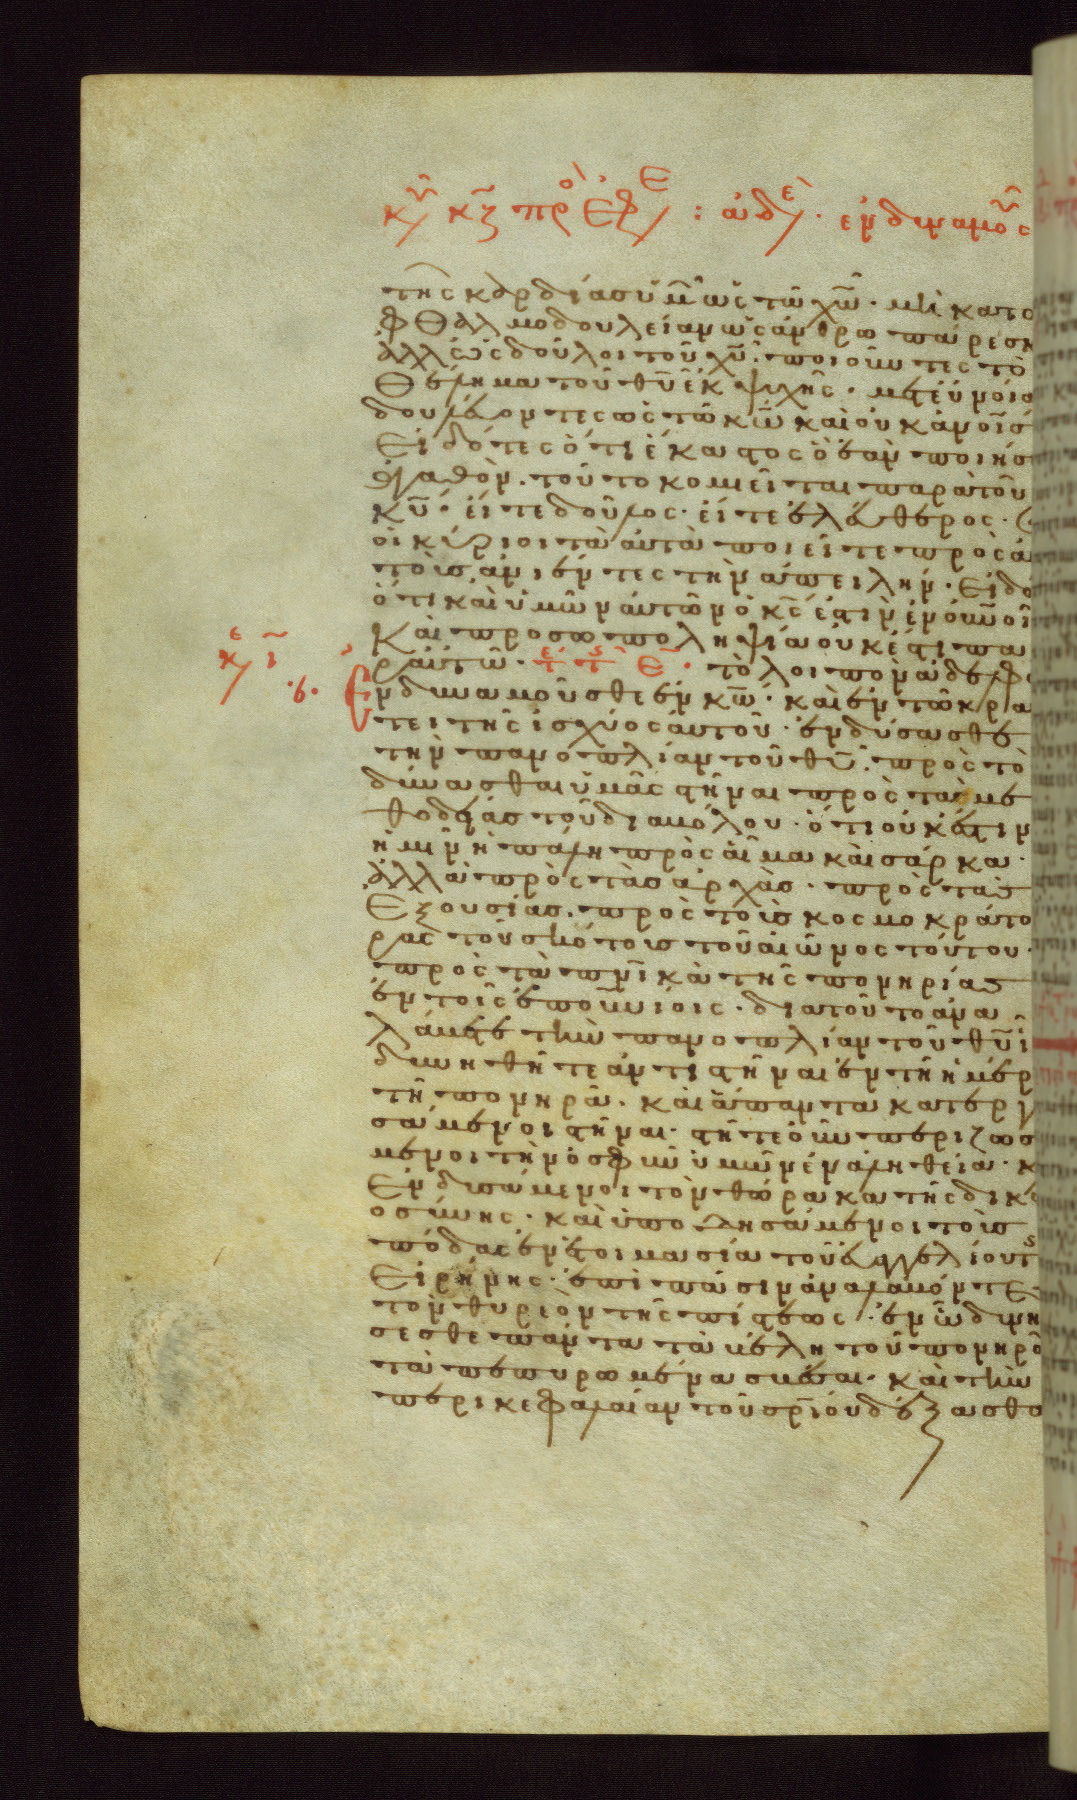 κυ κζ προ Εφε : ἀδε · ενδυναμοῦς
τῆς καρδίας ὑμῶν ὡς τῶ χω · μὴ κατο
φθαλμοδουλείαν ὡς ἀνθρωπάρεσκ
ἀλλ' ὡς δοῦλοι τοῦ χυ · ποιοῦντες τὸ
θέλημα τοῦ θυ ἐκ ψυχῆς · μετ εὐνοία
δουλεύοντες ὡς τῶ κω καὶ οὐκ ἀνοισ
Εἰδότες ὅτι ἕκαστος ὃ ἐὰν ποιήσ
ἀγαθὸν · τοῦτο κομιεῖται παρὰ τοῦ
κυ · εἴτε δοῦλος · εἴτε ἐλεύθερος ·
οἱ κύριοι τὰ αὐτὰ ποιεῖτε πρὸς ἀ
τοὺς ἀνιέντες τὴν ἀπειλήν · Εἰδό
ὅτι καὶ ὑμῶν αὐτῶν ὁ κς ἐστὶν ἐν οὐνοῖ
Καὶ προσωποληψία οὐκ ἔστι πα
ρ αὐτῶ · τὸ λοιπὸν ἀδελφο
κε ι
· β · Ενδυναμοῦσθε ἐν κω · καὶ ἐν τῶ κρα
τει τῆς ἰσχύος αὐτοῦ · ἐνδύσασθε
τὴν πανοπλίαν τοῦ θυ · πρὸς τὸ
δύνασθαι ὑμᾶς στῆναι πρὸς τὰς με
θοδείας τοῦ διαβόλου · ὅτι οὐκ ἔστιν
ἡμῖν ἡ πάλη πρὸς αἷμα καὶ σάρκα ·
ἀλλὰ πρὸς τὰς ἀρχὰς · πρὸς τὰς
Εξουσίας · πρὸς τοὺς κοσμοκράτο
ρας τοῦ σκότους τοῦ αἰῶνος τούτου ·
πρὸς τὰ πνικὰ τῆς πονηρίας
ἐν τοῖς ἐπουνίοις · διατοῦτο ἀνα
λάβετε τὴν πανοπλίαν τοῦ θυ ἵ
δυνηθῆτε ἀντιστῆναι ἐν τῆ ἡμέρ
τῆ πονηρᾶ · καὶ ἅπαντα κατεργ
σάμενοι στῆναι · στῆτε οὖν περιζωσ
μενοι τὴν ὀσφὺν ὑμῶν ἐν ἀληθεία · κ
Ενδυσάμενοι τὸν θώρακα τῆς δικ
οσύνης · καὶ ὑποδησάμενοι τοὺς
πόδας ἐν ἑτοιμασία τοῦ εὐαγγελίου τς
Εἰρήνης · ἐπὶ πάσιν ἀναλαβόντε
τὸν θυρεὸν τῆς πίστεως · ἐν ὧ δυνή
σεσθε πάντα τὰ βέλη τοῦ πονηρο
τὰ πεπυρωμένα σβέσαι · καὶ τὴν
περικεφαλαίαν τοῦ σρίου δέξασθα